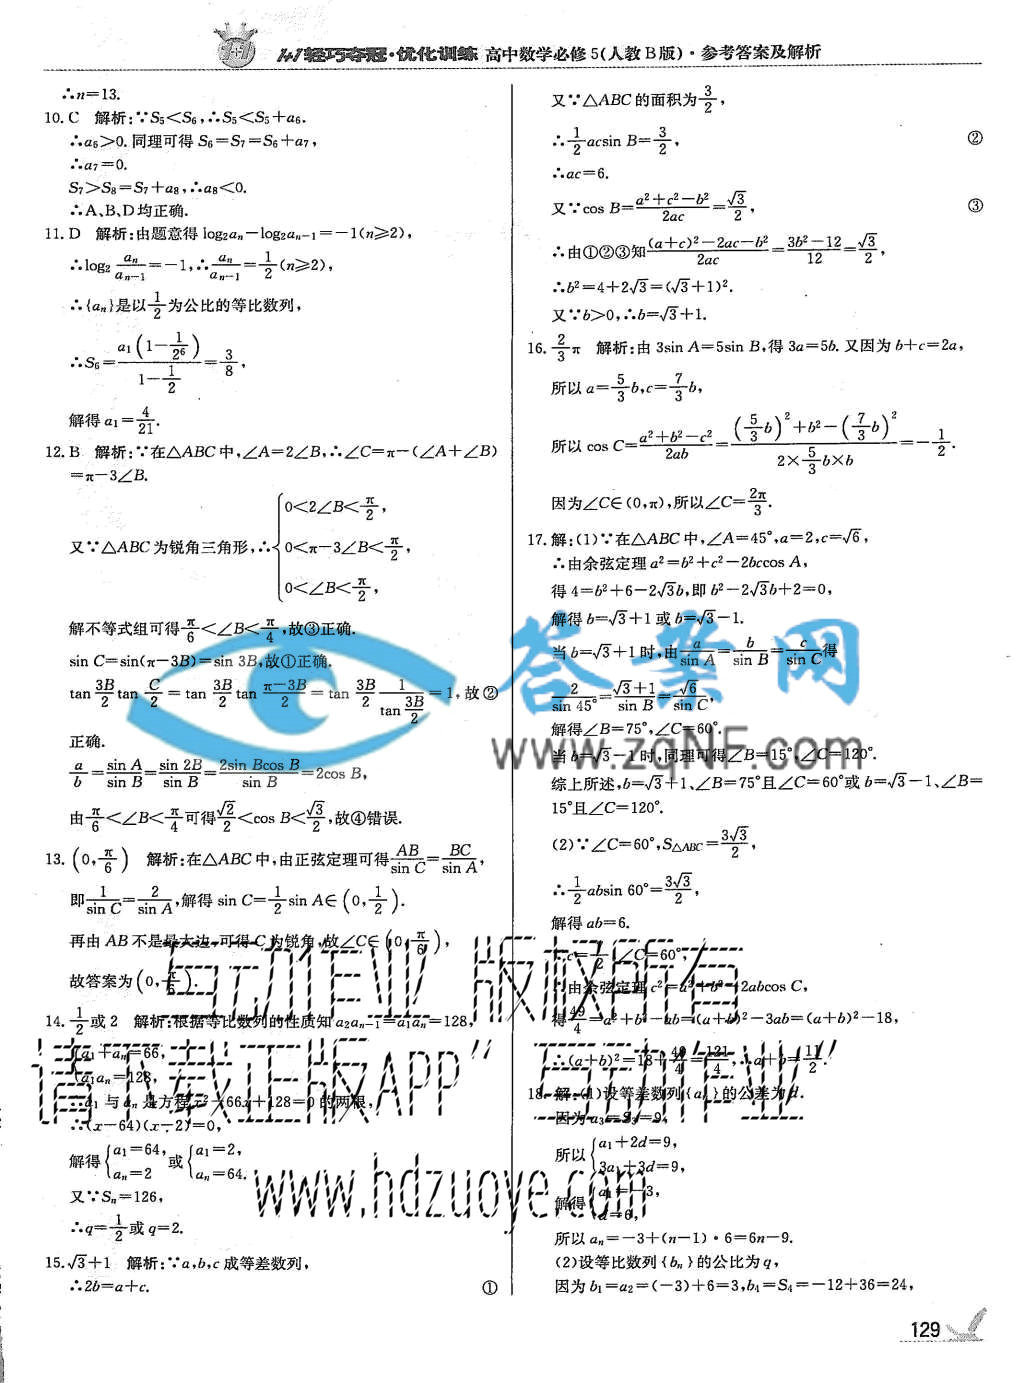 1+1轻巧夺冠·优化训练 高中数学必修5(人教B版)·参考答案及解析
∴n=13.
10. C 解析:∵S₅<S₆,∴S₅<S₅+a₆.
∴a₆>0.同理可得 S₆=S₇=S₆+a₇,
∴a₇=0.
S₇>S₈=S₇+a₈,∴a₈<0.
∴A、B、D均正确.
11. D 解析:由题意得 log₂aₙ-log₂aₙ₋₁=-1(n≥2),
∴log₂ aₙ/aₙ₋₁=-1,∴aₙ/aₙ₋₁=1/2(n≥2),
∴{aₙ}是以1/2为公比的等比数列,
∴S₆=a₁(1-1/2⁶)/(1-1/2)=3/8,
解得 a₁=4/21.
12. B 解析:∵在△ABC中,∠A=2∠B,∴∠C=π-(∠A+∠B)
=π-3∠B.
又∵△ABC为锐角三角形,∴{0<2∠B<π/2,
0<π-3∠B<π/2,
0<∠B<π/2,
解不等式组可得π/6<∠B<π/4,故③正确.
sin C=sin(π-3B)=sin 3B,故①正确.
tan 3B/2 tan C/2=tan 3B/2 tan (π-3B)/2=tan 3B/2 · 1/(tan 3B/2)=1,故②
正确.
a/b=sin A/sin B=sin 2B/sin B=2sin Bcos B/sin B=2cos B,
由π/6<∠B<π/4可得√2/2<cos B<√3/2,故④错误.
13. (0,π/6) 解析:在△ABC中,由正弦定理可得AB/sin C=BC/sin A,
即1/sin C=2/sin A,解得 sin C=1/2 sin A∈(0,1/2).
再由AB不是最大边,可得C为锐角,故∠C∈(0,π/6),
故答案为(0,π/6).
14. 1/2或2 解析:根据等比数列的性质知 a₂aₙ₋₁=a₁aₙ=128,
{a₁+aₙ=66,
a₁aₙ=128,
∴a₁与aₙ是方程x²-66x+128=0的两根,
∴(x-64)(x-2)=0,
解得{a₁=64,aₙ=2 或{a₁=2,aₙ=64.
又∵Sₙ=126,
∴q=1/2或q=2.
15. √3+1 解析:∵a,b,c成等差数列,
∴2b=a+c. ①
又∵△ABC的面积为3/2,
∴1/2 acsin B=3/2, ②
∴ac=6.
又∵cos B=(a²+c²-b²)/2ac=√3/2, ③
∴由①②③知((a+c)²-2ac-b²)/2ac=(3b²-12)/12=√3/2,
∴b²=4+2√3=(√3+1)².
又∵b>0,∴b=√3+1.
16. 2/3π 解析:由3sin A=5sin B,得3a=5b.又因为b+c=2a,
所以a=5/3 b,c=7/3 b,
所以 cos C=(a²+b²-c²)/2ab=((5/3 b)²+b²-(7/3 b)²)/(2×5/3 b×b)=-1/2.
因为∠C∈(0,π),所以∠C=2π/3.
17. 解:(1)∵在△ABC中,∠A=45°,a=2,c=√6,
∴由余弦定理 a²=b²+c²-2bccos A,
得4=b²+6-2√3b,即b²-2√3b+2=0,
解得b=√3+1或b=√3-1.
当b=√3+1时,由a/sin A=b/sin B=c/sin C得
2/sin 45°=(√3+1)/sin B=√6/sin C,
解得∠B=75°,∠C=60°.
当b=√3-1时,同理可得∠B=15°,∠C=120°.
综上所述,b=√3+1、∠B=75°且∠C=60°或b=√3-1、∠B=
15°且∠C=120°.
(2)∵∠C=60°,S△ABC=3√3/2,
∴1/2 absin 60°=3√3/2,
解得ab=6.
∴c=7/2,∠C=60°,
∴由余弦定理 c²=a²+b²-2abcos C,
得49/4=a²+b²-ab=(a+b)²-3ab=(a+b)²-18,
∴(a+b)²=18+49/4=121/4,∴a+b=11/2.
18. 解:(1)设等差数列{aₙ}的公差为d.
因为a₃=S₃=9,
所以{a₁+2d=9,
3a₁+3d=9,
解得{a₁=-3,
d=6,
所以aₙ=-3+(n-1)·6=6n-9.
(2)设等比数列{bₙ}的公比为q,
因为b₁=a₂=(-3)+6=3,b₄=S₄=-12+36=24,
129
答案网
www.zqNF.com
互动作业 版权所有
请下载正版APP“互动作业”
www.hdzuoye.com